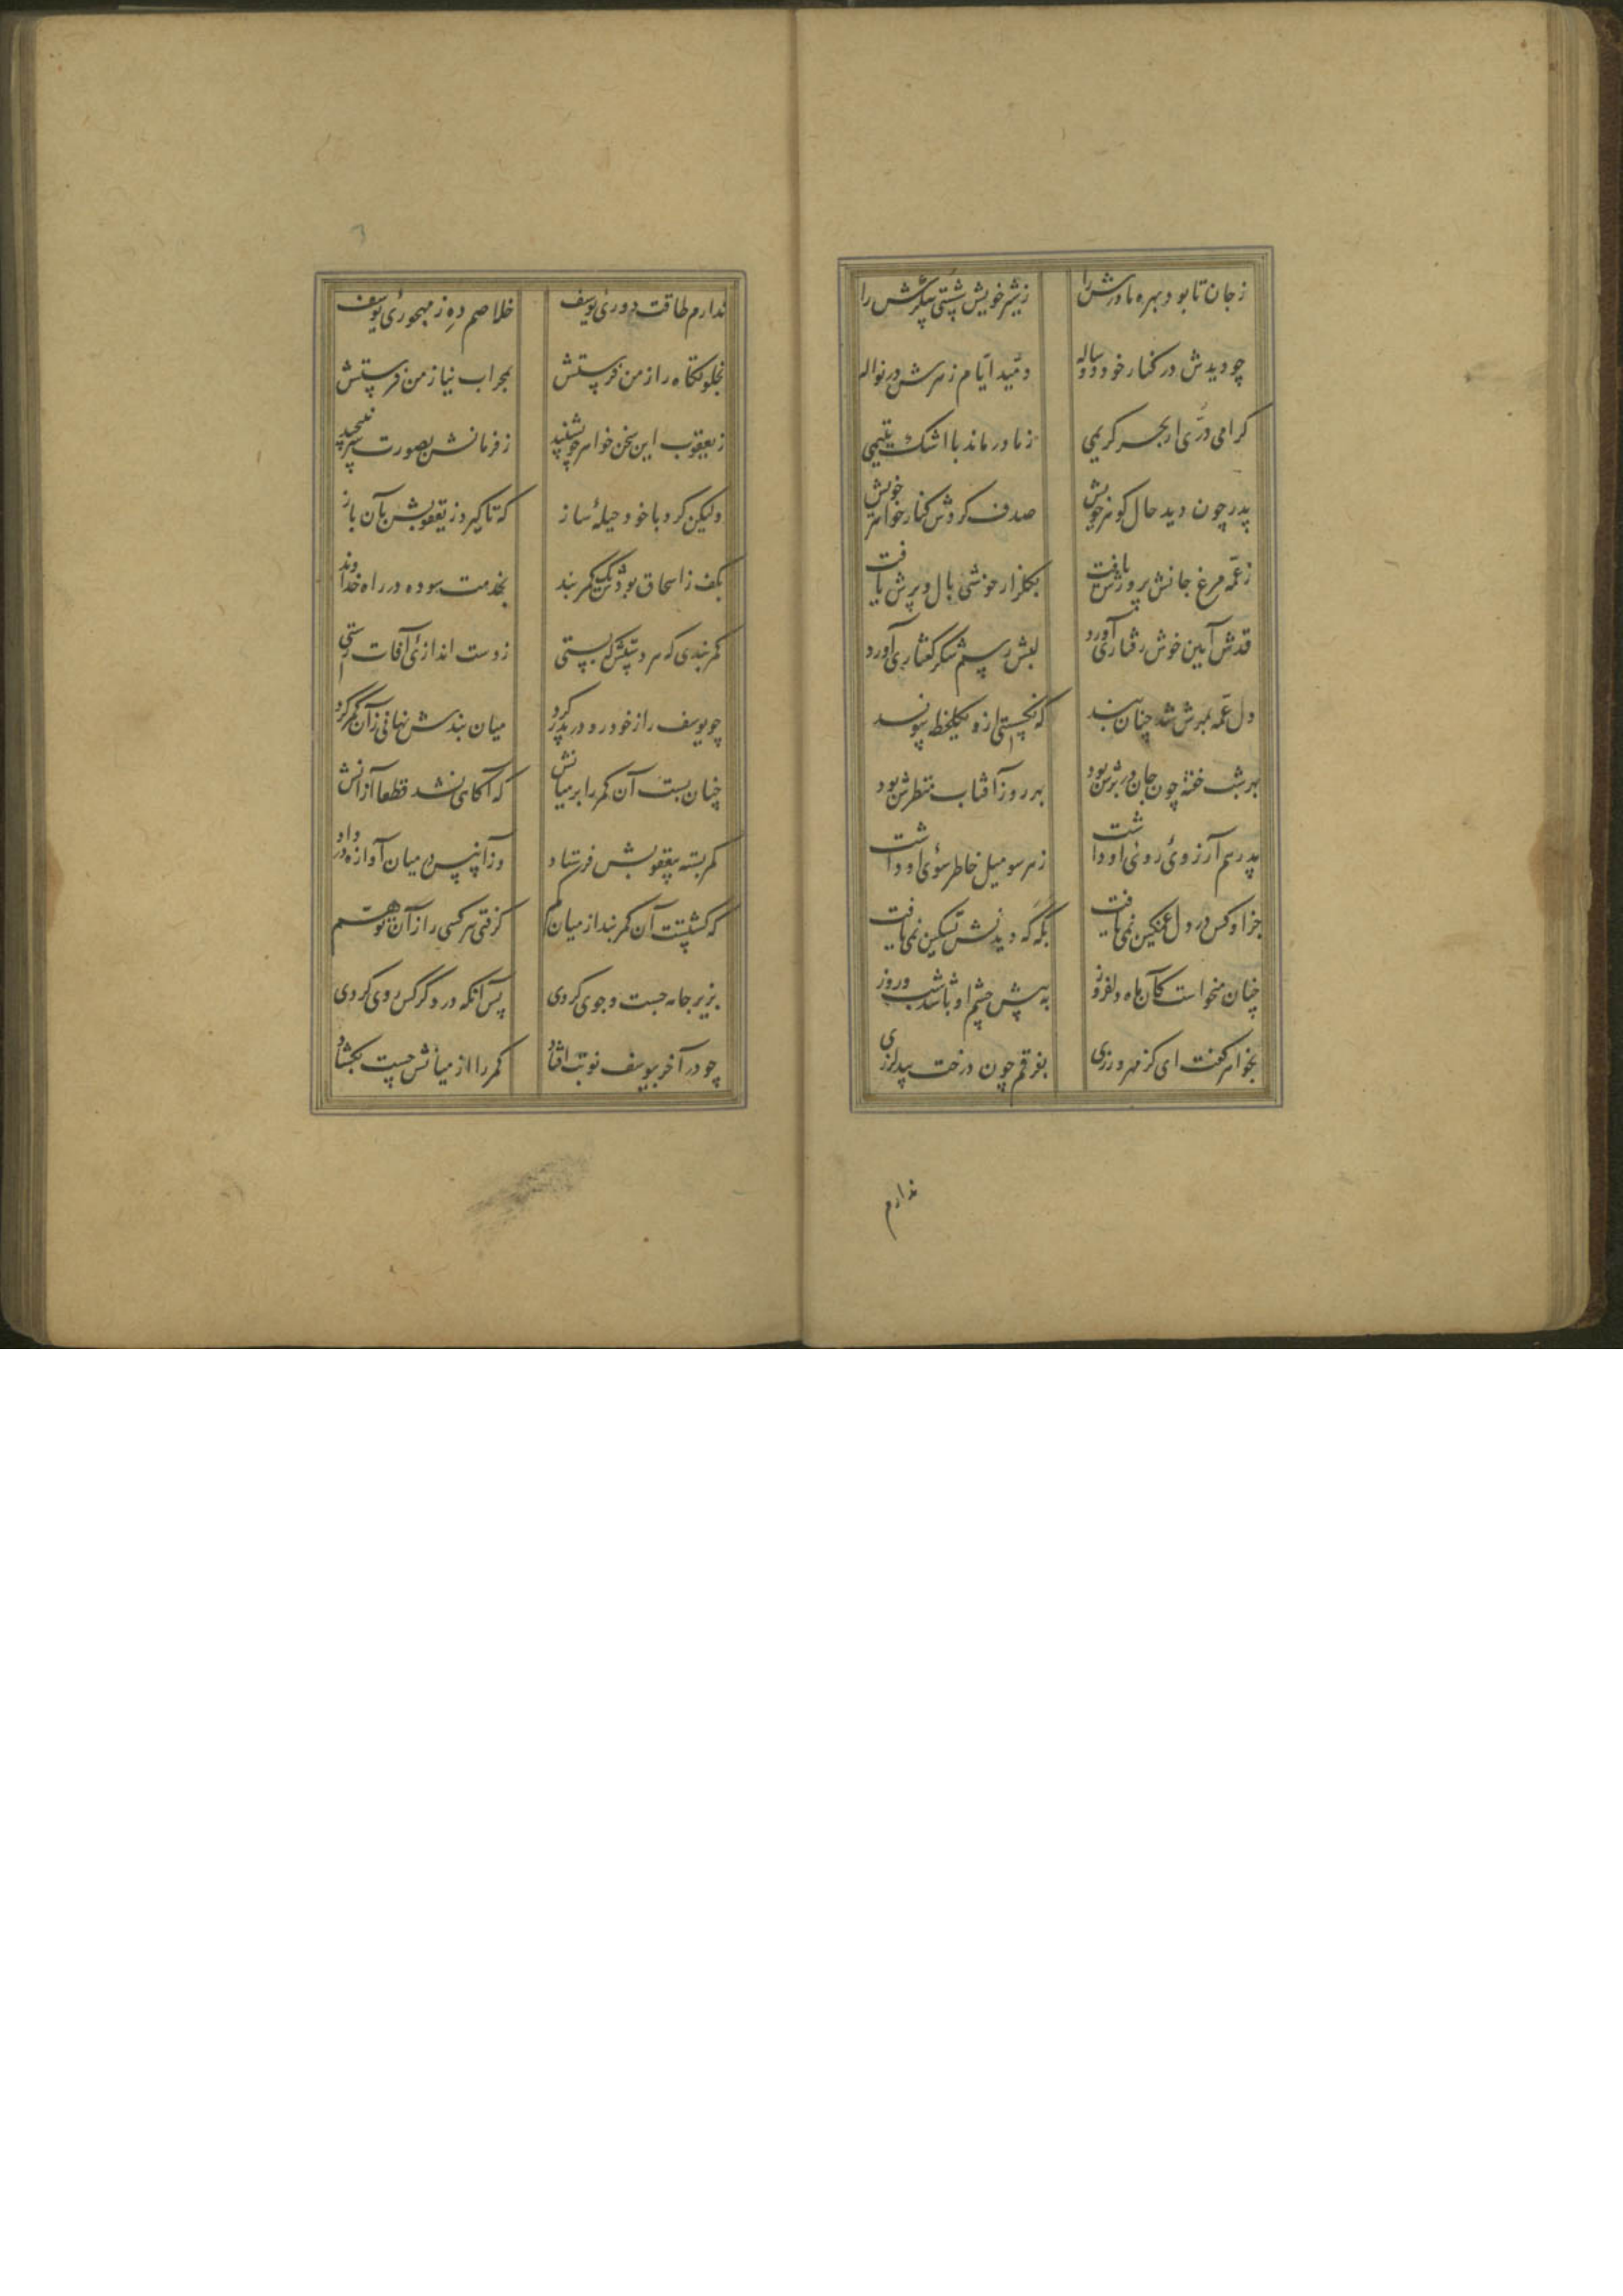 ز جان تا بود بهره مادرش را
ز شیر خویش شستی شکرش را
چو دیدش در کنار خود دو ساله
دمید ایام زهرش در نواله
کرامی درّی از بحر کریمی
ز مادر ماند با اشک یتیمی
پدر چون دید حال کوهر خویش
صدف کردش کنار خواهر خویش
ز عمّه مرغ جانش پرورش یافت
بکلزار خوشی بال و پرش یافت
قدش آیین خوش رفتاری آورد
لبش رسم شکر کفتاری آورد
دل عمّه بمهرش شد چنان بند
که نکسستی ازو یکلحظه پیوند
بهر شب خفته چون جان در برش بود
بهر روز آفتاب منظرش بود
پدر هم آرزوئ روئی او داشت
ز هر سو میل خاطر سوئ او داشت
جز او کس در دل غمکین نمی‌یافت
بکه که دیدنش تسکین نمی‌یافت
چنان میخواست کآن ماه دلفروز
به پیش چشم او باشد شب و روز
بخواهر کفت ای کز مهرورزی
بفرقم چون درخت بید لرزی
ندارم
ندارم طاقت دورئ یوسف
خلاصم ده ز مهجورئ یوسف
بخلوتکاه راز من فرستش
بمحراب نیاز من فرستش
ز یعقوب این سخن خواهر چو بشنید
ز فرمانش بصورت سر نپیچید
ولیکن کرد با خود حیلهٔ ساز
که تا کیرد ز یعقوبش بآن باز
بکف ز اسحاق بودش یک کمربند
بخدمت سوده در راه خداوند
کمربندی که هر دستش که بستی
ز دست اندازئ آفات رستی
چو یوسف را ز خود رو در پدر کرد
میان بندش نهانی زآن کمر کرد
چنان بست آن کمر را بر میانش
که آکاهی نشد قطعا از آنش
کمر بسته بیعقوبش فرستاد
وز آن پس در میان آوازه در داد
که کشتست آن کمربند از میان کم
کرفتی هر کسی را ز آن توهّم
بزیر جامه جست و جوی کردی
پس آنکه در دکر کس روی کردی
چو در آخر بیوسف نوبت افتاد
کمر را از میانش چست بکشاد